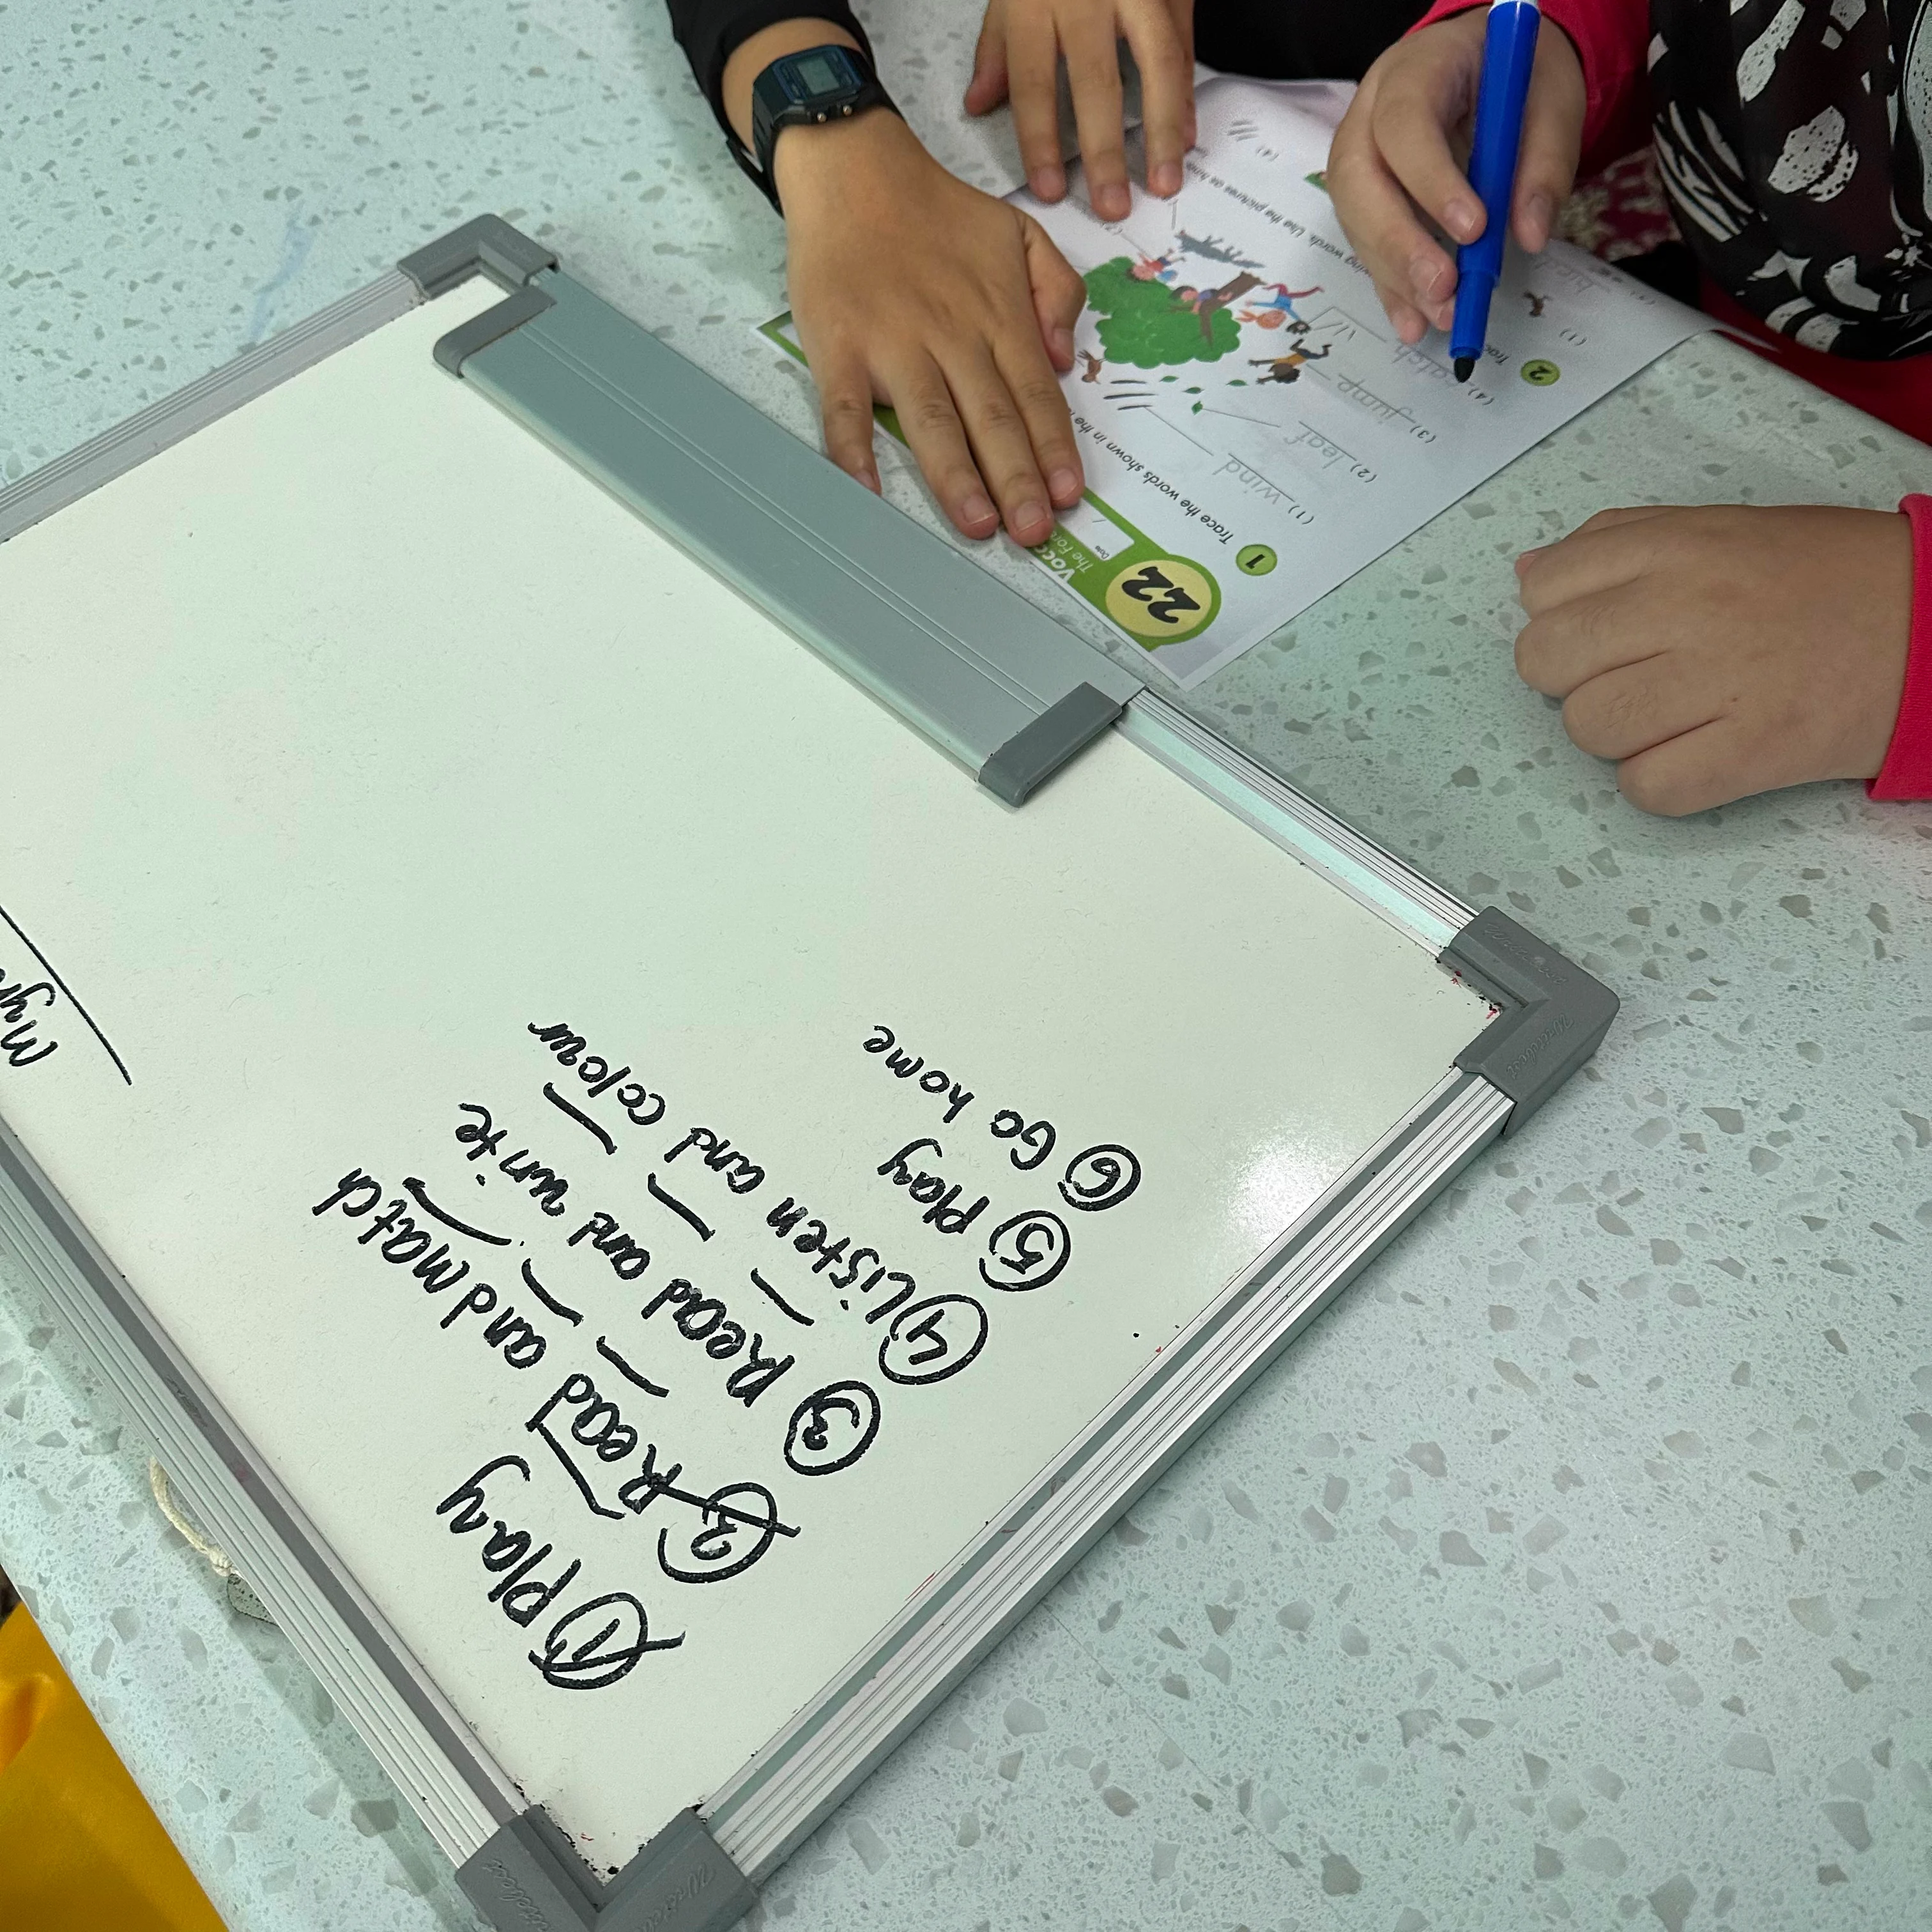 Myr
① Play
② Read and match
③ Read and write
④ Listen and colour
⑤ Play
⑥ Go home
22
Voc
The For
Date
/
1 Trace the words shown in the
(1) wind
(2) leaf
(3) jump
(4) catch
2 Trac
wing words. Use the pictures as hin
(1)
(2)
(4)